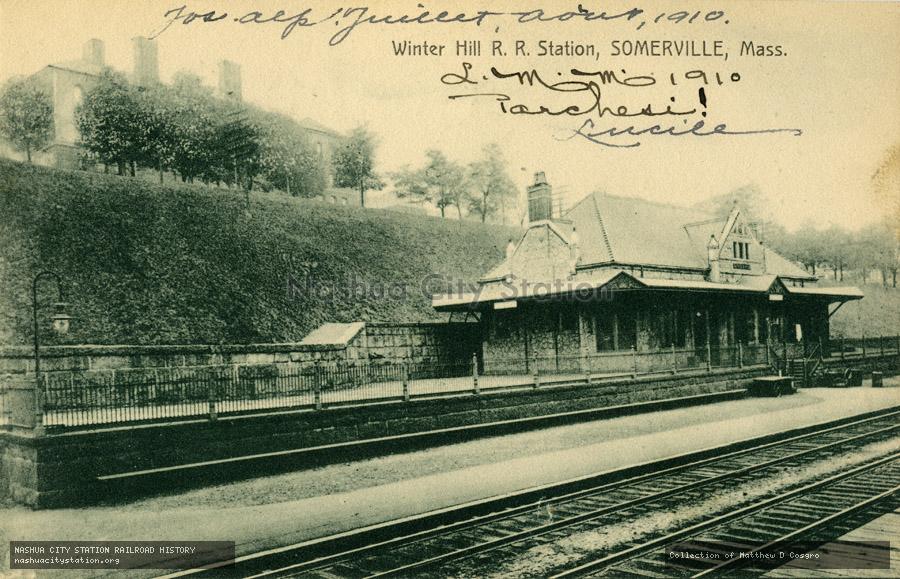 Jos. alp! Juillet, août, 1910.
Winter Hill R. R. Station, SOMERVILLE, Mass.
L. M. M. 1910
Parchesi!
Lucile
Nashua City Station
NASHUA CITY STATION RAILROAD HISTORY
nashuacitystation.org
Collection of Matthew D Cosgro